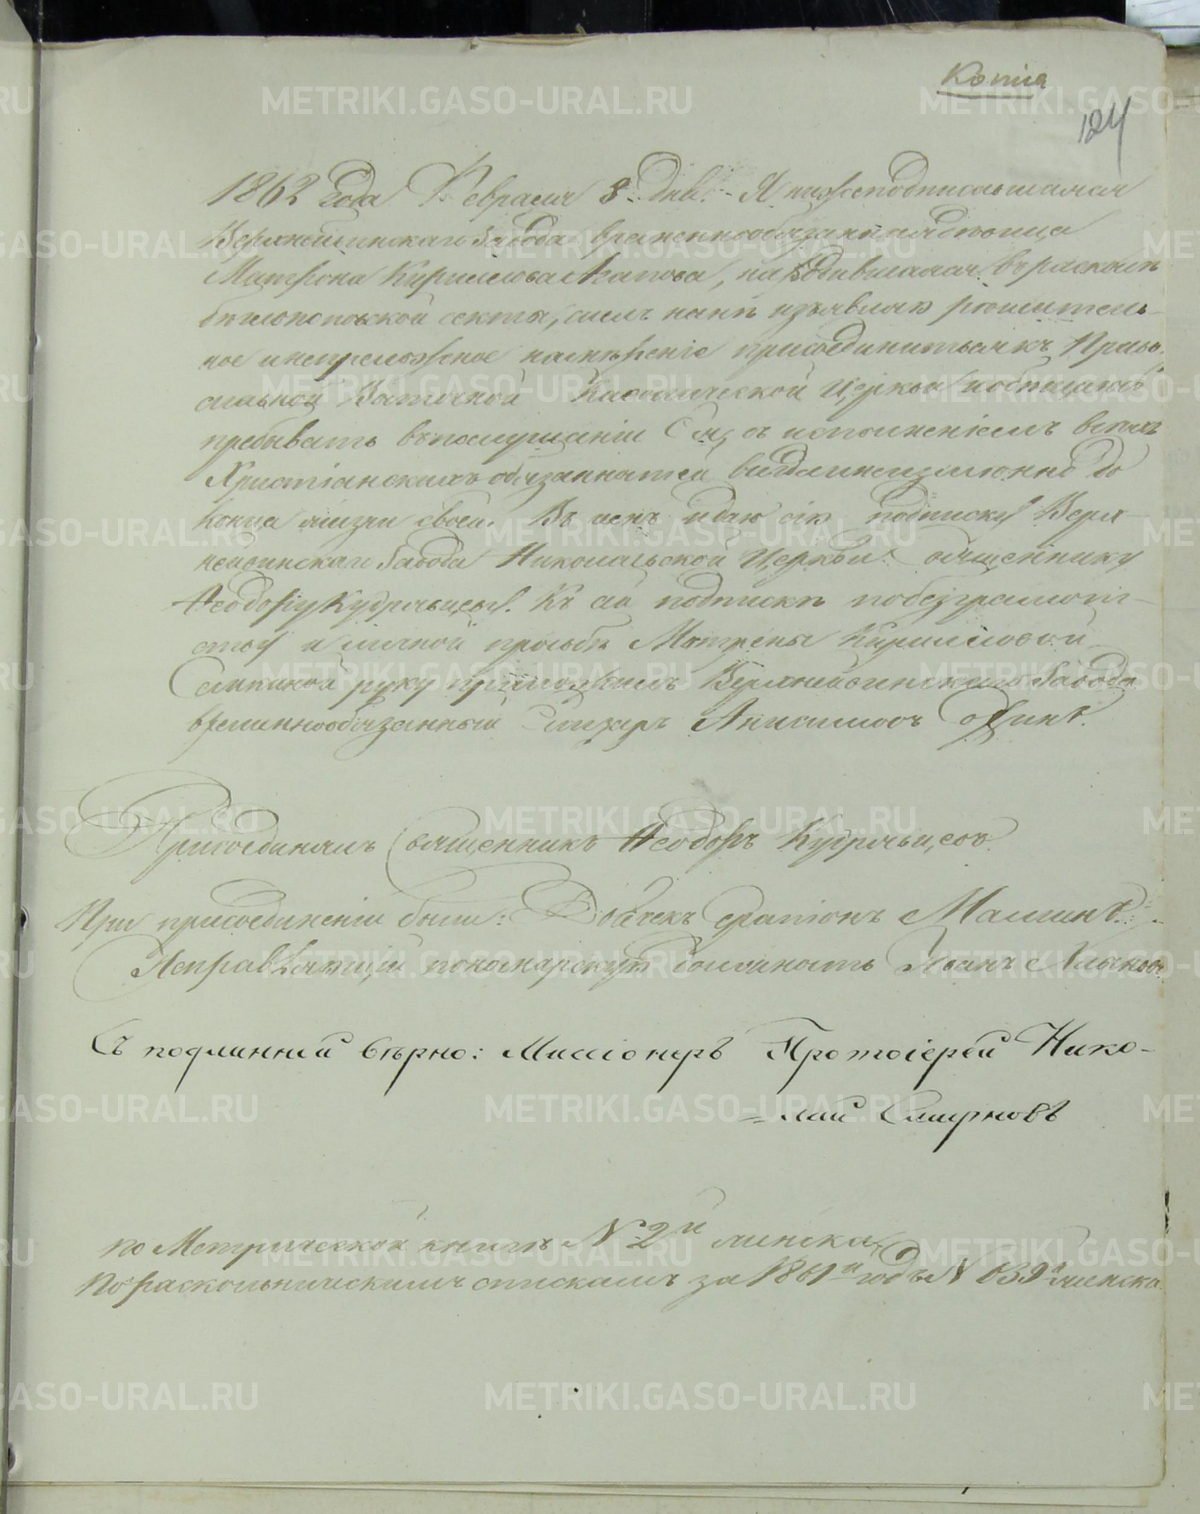 Копія
124
1862 года Февраля 8. дня. Я нижеподписавшаяся
Верхнейвинскаго Завода временнообязанная дѣвица
Матрона Кириллова Агапова, находившаяся въ расколѣ
бѣглопоповской секты, симъ нынѣ изъявляю рѣшитель-
ное и непреложное намѣреніе присоединиться къ Право-
славной Восточной Каѳолической Церкви и обѣщаюсь
пребывать въ послушаніи Ея, съ исполненіемъ всѣхъ
Христіанскихъ обязанностей всегда неизмѣнно до
конца жизни своей. Въ чемъ и даю сію подписку Верх-
нейвинскаго Завода Никольской Церкви священнику
Ѳеодору Кудрявцеву. Къ сей подпискѣ по безграмот-
ству и личной просьбѣ Матрены Кирилловой
руку приложилъ Верхнейвинскаго Завода
временнообязанный Анисимовъ
Присоединялъ Священникъ Ѳеодоръ Кудрявцевъ.
При присоединеніи были: Дьячекъ Серапіонъ Маминъ.
Исправляющій пономарскую должность Иванъ
Съ подлинной вѣрно: Миссіонеръ Протоіерей Нико-
=лай Смирновъ
по Метрической книгѣ № 2й женска
По раскольническимъ спискамъ за 1861й годъ № 639й женска
METRIKI.GASO-URAL.RU